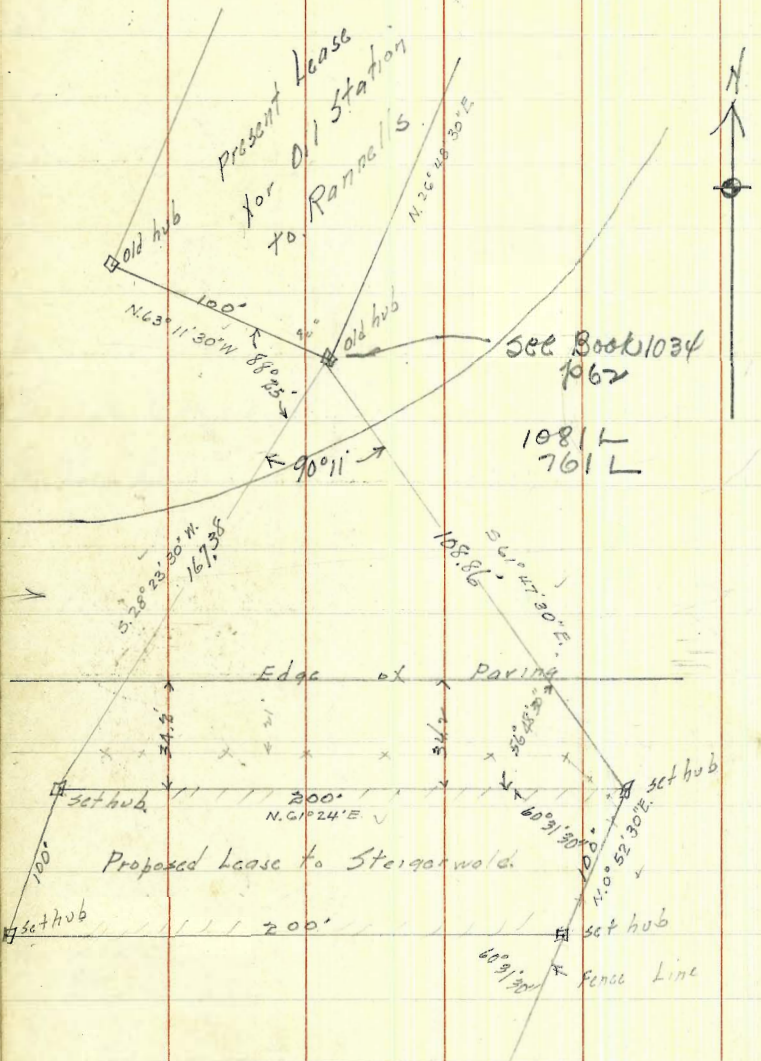 Present Lease
for Oil Station
to Rannells
N
N. 26° 48' 30" E.
old hub
100'
N. 63° 11' 30" W
90°
old hub
88° 25'
See Book 1034
p 62
90° 11'
1081 L
761 L
S. 28° 23' 30" W.
167.38
108.86'
S 61° 47' 30" E.
Edge of Paving
34.2'
21'
34.2'
56° 48' 30"
set hub.
200'
N. 61° 24' E.
set hub
60° 31' 30"
100'
N. 0° 52' 30" E.
100'
Proposed Lease to Steigerwald.
set hub
200'
set hub
60° 31' 30"
Fence Line